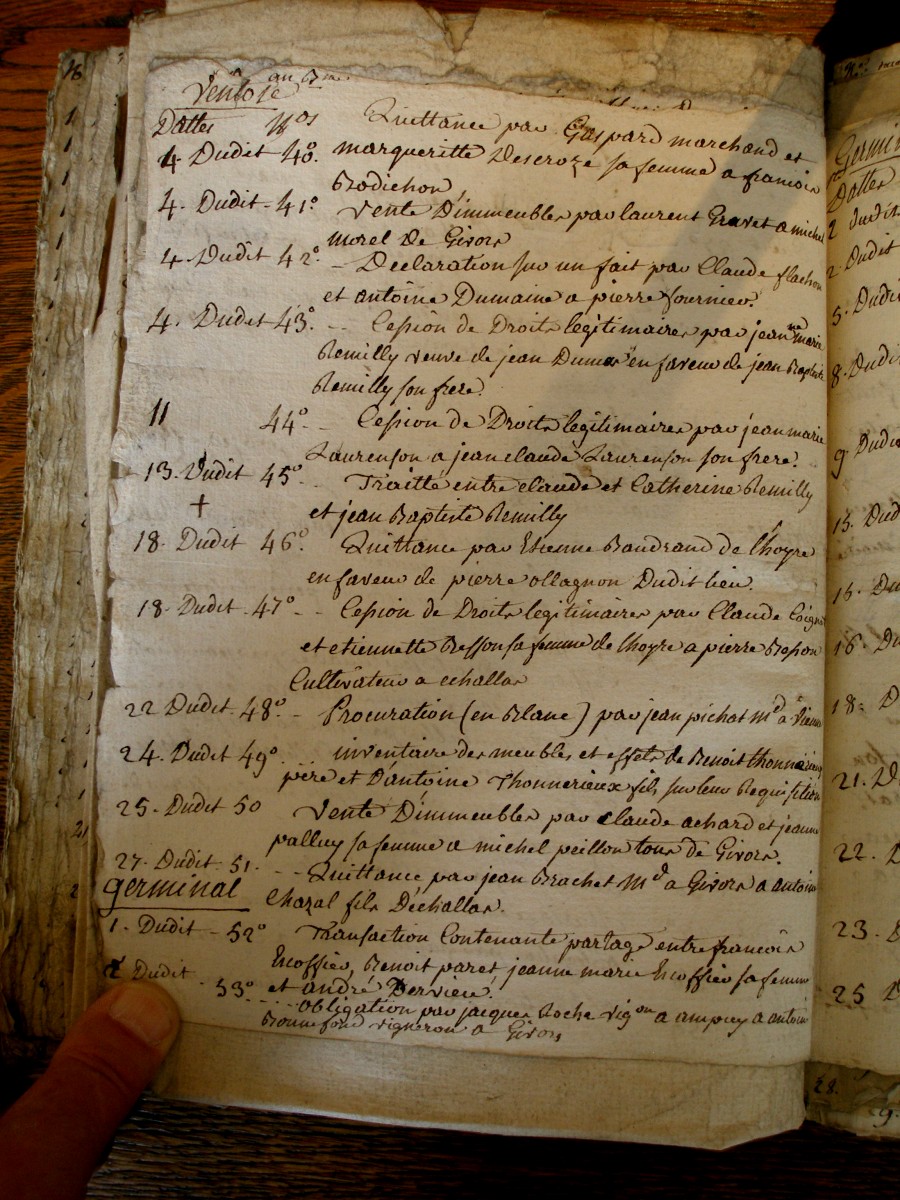 Ventose an 8me
Dattes Nos Quittance par Gaspard marchand et
4 Dudit 40o. margueritte Descroze sa femme a francois
Bodichon
4. Dudit - 41o vente Dimmeubles par laurent Gravet a michel
morel de Givors
4. Dudit 42o. - Declaration sur un fait par Claude flachon
et antoine Dumaine a pierre fournier.
4. Dudit 43o. - - Cession de Droits legitimaires par jeanne marie
Remilly veuve de jean Dumas en faveur de jean Baptiste
Remilly son frere.
11 44o - - Cession de Droits legitimaires par jean marie
Laurenson a jean claude Laurenson son frere.
13. Dudit 45o. - Traitté entre claude et Catherine Remilly
+ et jean Baptiste Remilly
18. Dudit 46o. Quittance par Etienne Baudrand de lhoyre
en faveur de pierre ollagnon Dudit lieu.
18. Dudit - 47o - - Cession de Droits legitimaires par Claude
et etiennette Besson sa femme de lhoyre a pierre Besson
Cultivateur a echallas
22 Dudit - 48o - Procuration (en Blanc) par jean pichat md a vienne
24. Dudit 49o ... inventaire des meubles et effets de Benoit thonnerieux
pere et Dantoine Thonnerieux fils sur leur Requisition
25. Dudit 50 Vente Dimmeubles par claude achard et jeanne
palluy sa femme a michel peillon tous de Givors.
27. Dudit - 51. - - Quittance par jean Brachet Md a Givors a antoine
germinal Chazal fils Déchallas.
1. Dudit - 52o Transaction Contenante partage entre francois
Escoffier, Benoit paret, jeanne marie Escoffier sa femme
Dudit - 53o et andré Dervieu.
.... obligation par jacques Roche vigon a ampuy a antoine
Bonnefond vigneron a Givors
Germin
Dattes
2 Dudit
2. Dudit
5. Dudit
8. Dudit
9. Dudit
15. Dud
15. Du
16. Du
18. D
21. D
22. D
23. D
25 D
28.
9.